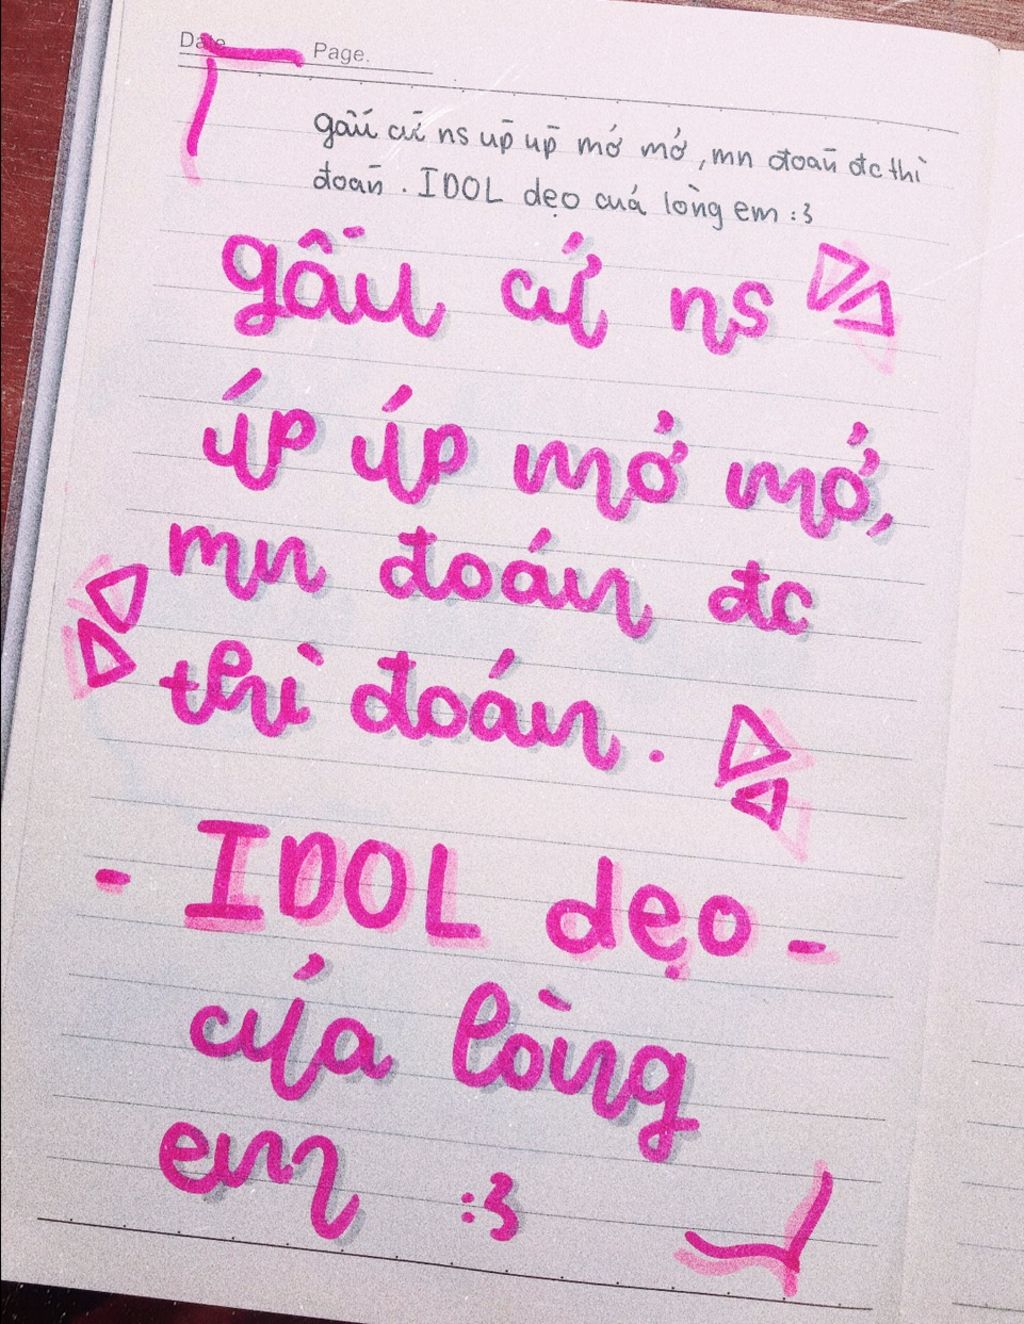 Date Page.
gấu cứ ns úp úp mở mở, mn đoán đc thì
đoán. IDOL dẹo của lòng em :3
gấu cứ ns
úp úp mở mở,
mn đoán đc
thì đoán.
- IDOL dẹo -
của lòng
em :3